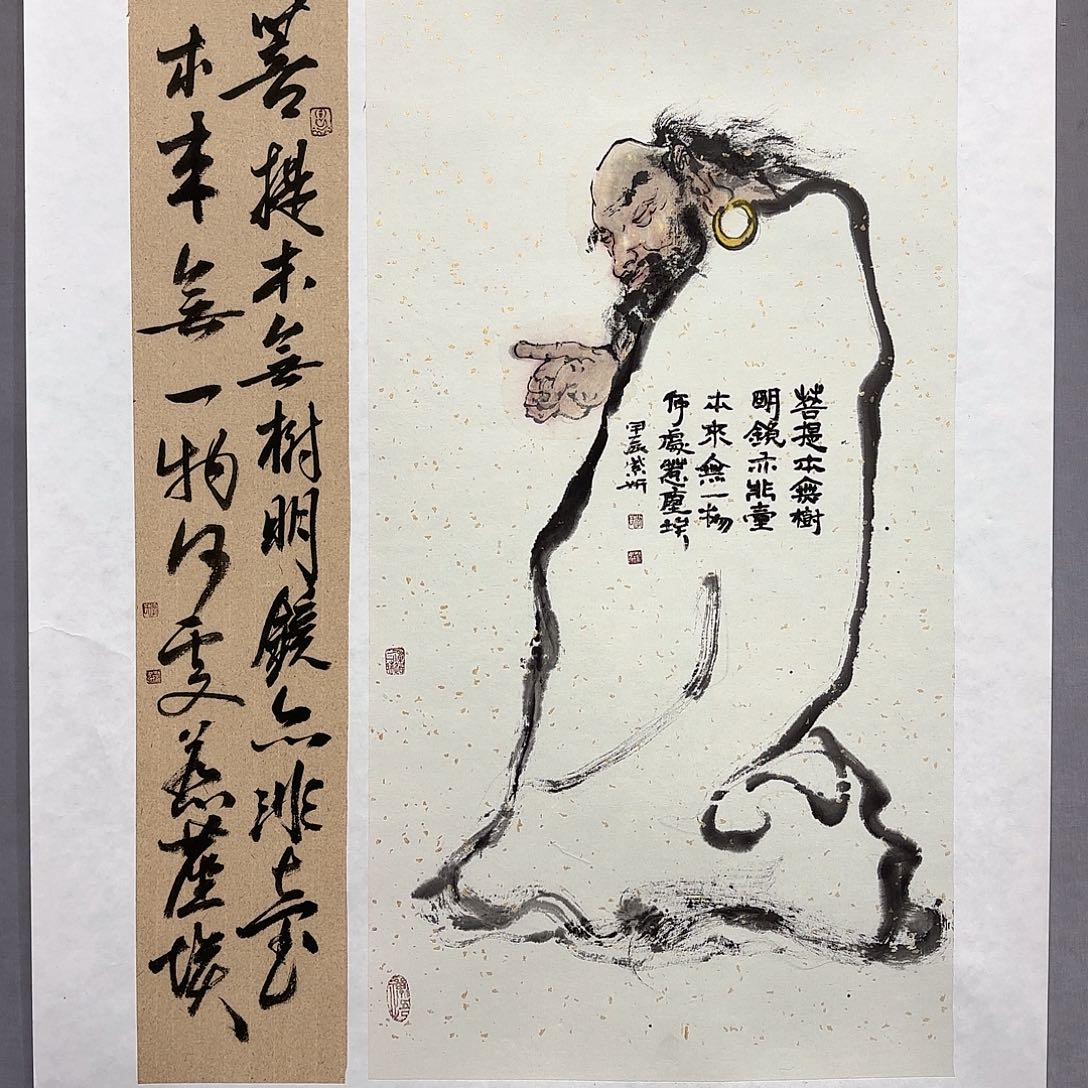 菩提本無樹
明鏡亦非臺
本來無一物
何處惹塵埃
甲辰紫妍
菩提本無樹明鏡亦非臺
本來無一物何處惹塵埃